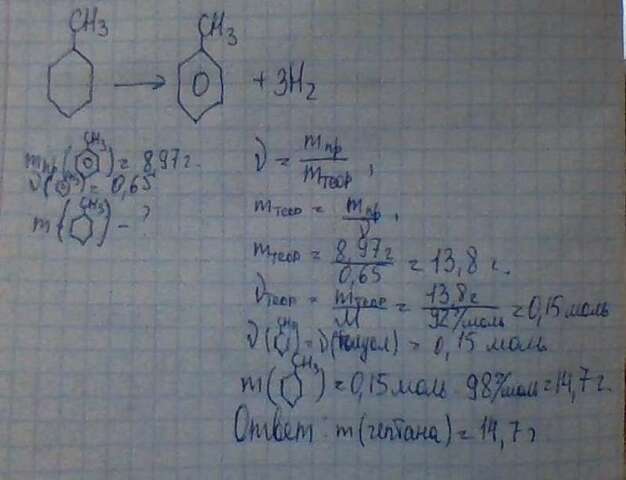 CH₃ CH₃
→ + 3H₂
mпр(CH₃) = 8,97 г.
ν(CH₃) = 0,65
m(CH₃) - ?
ν = mпр / mтеор ,
mтеор = mпр / ν ,
mтеор = 8,97 г / 0,65 = 13,8 г.
νтеор = mтеор / M = 13,8 г / 92 г/моль = 0,15 моль
ν(CH₃) = ν(толуол) = 0,15 моль
m(CH₃) = 0,15 моль · 98 г/моль = 14,7 г.
Ответ: m(гептана) = 14,7 г